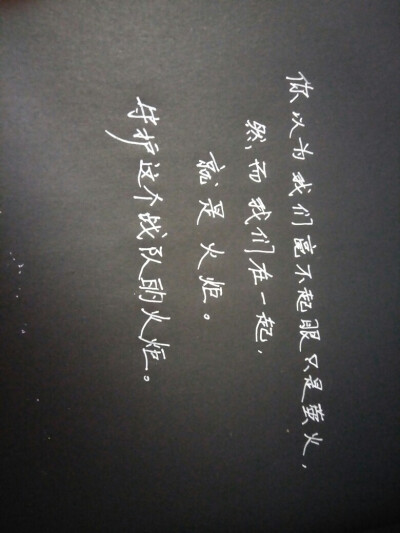 你以为我们毫不起眼只是萤火，
然而我们在一起，
就是火炬。
守护这个战队的火炬。